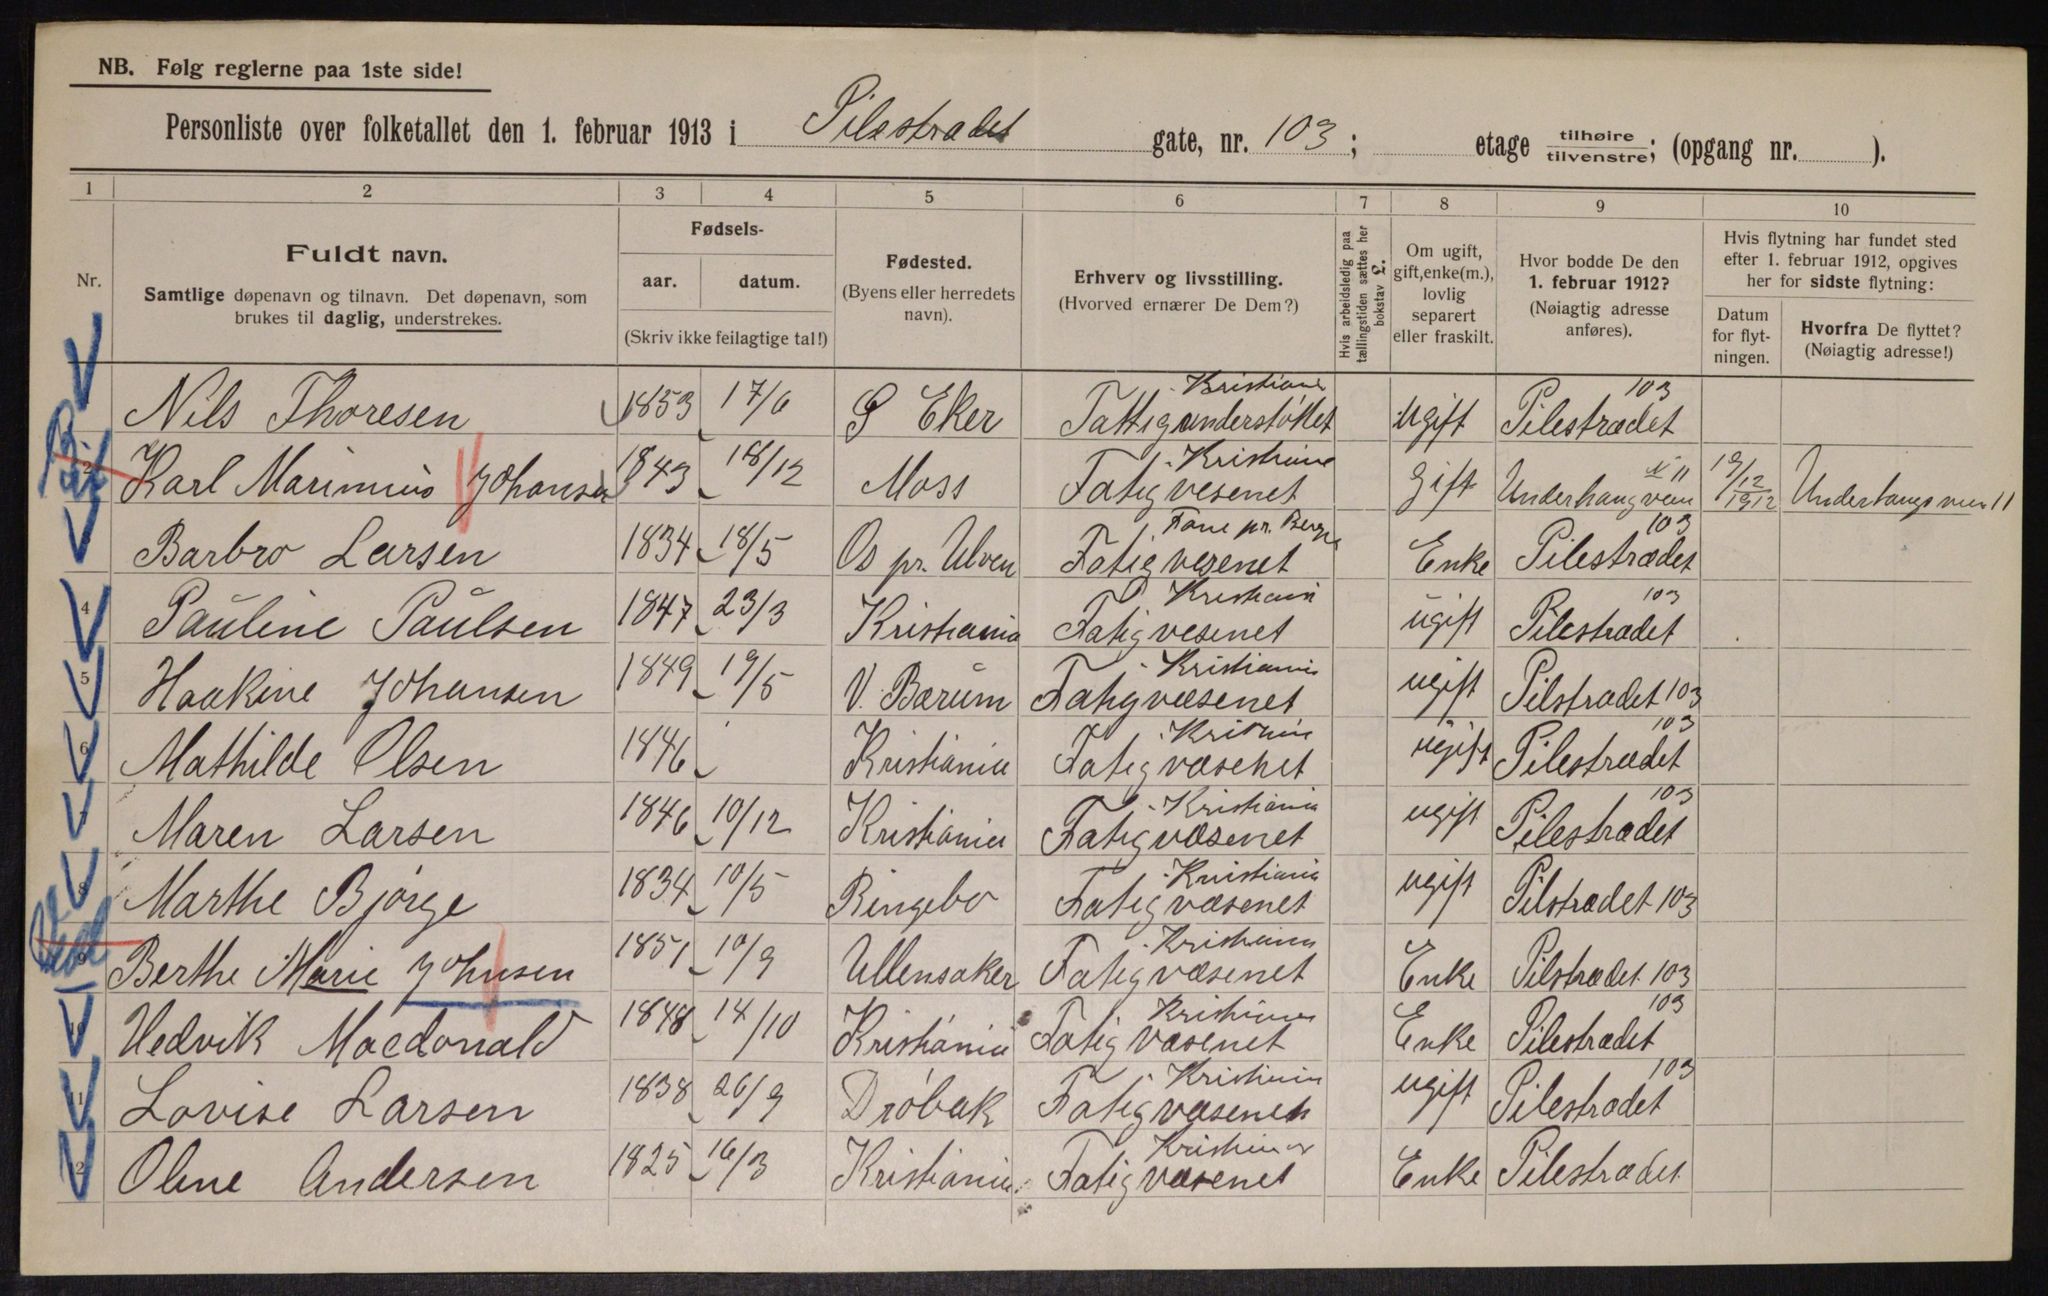 NB. Følg reglerne paa 1ste side!
Personliste over folketallet den 1. februar 1913 i Pilestrædet gate, nr. 103; etage tilhøire tilvenstre; (opgang nr. ).
1 2 3 4 5 6 7 8 9 10
Nr.
Fuldt navn.
Samtlige døpenavn og tilnavn. Det døpenavn, som
brukes til daglig, understrekes.
Fødsels-
aar. datum.
(Skriv ikke feilagtige tal!)
Fødested.
(Byens eller herredets
navn).
Erhverv og livsstilling.
(Hvorved ernærer De Dem?)
Hvis arbeidsledig paa
tællingstiden sættes her
bokstav £.
Om ugift,
gift, enke(m.),
lovlig
separert
eller fraskilt.
Hvor bodde De den
1. februar 1912?
(Nøiagtig adresse
anføres).
Hvis flytning har fundet sted
efter 1. februar 1912, opgives
her for sidste flytning:
Datum
for flyt-
ningen.
Hvorfra De flyttet?
(Nøiagtig adresse!)
Nils Thoresen 1853 17/6 Ø Eker Fattigunderstøttet Kristiania ugift Pilestrædet 103
2 Karl Marinius Johansen 1843 18/12 Moss Fatigvesenet Kristiania Gift 19/12 1912
3 Barbro Larsen 1834 18/5 Os pr. Ulven Fatigvesenet Fane pr. Bergen Enke Pilestrædet 103
4 Pauline Paulsen 1847 23/3 Kristiania Fatigvesenet Kristiania ugift Pilestrædet 103
5 Haakine Johansen 1849 19/5 V. Bærum Fatigvæsenet Kristiania ugift Pilstrædet 103
6 Mathilde Olsen 1846 Kristiania Fatigvæsenet Kristiania ugift Pilestrædet 103
7 Maren Larsen 1846 10/12 Kristiania Fatigvæsenet Kristiania ugift Pilestrædet 103
8 Marthe Bjørge 1834 10/5 Ringebo Fatigvæsenet Kristiania ugift Pilstrædet 103
9 Berthe Marie Johnsen 1851 10/9 Ullensaker Fatigvæsenet Kristiania Enke Pilstrædet 103
10 Hedvik Macdonald 1848 14/10 Kristiania Fatigvæsenet Kristiania Enke Pilestrædet 103
11 Lovise Larsen 1838 26/9 Drøbak Fatigvæsenet Kristiania ugift Pilestrædet 103
12 Oline Andersen 1825 16/3 Kristiania Fatigvæsenet Kristiania Enke Pilestrædet